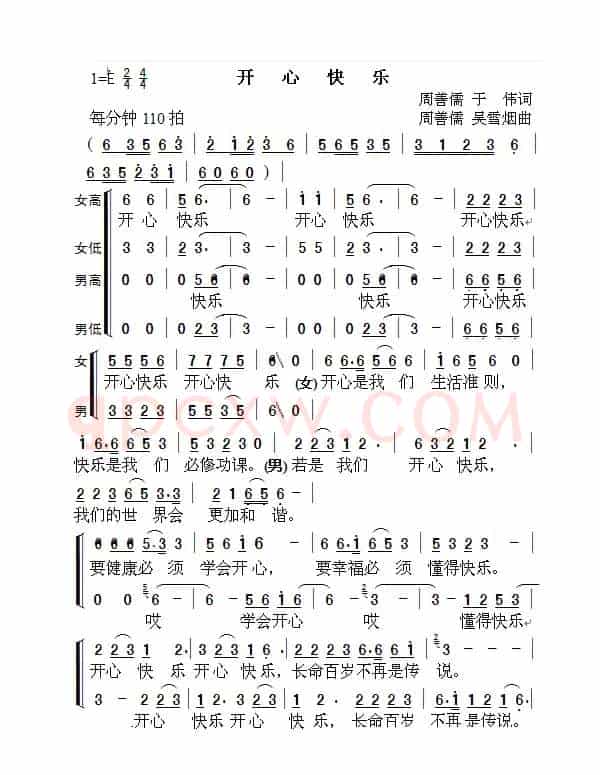 开 心 快 乐
1=E 2/4 4/4
周善儒 于 伟词
每分钟 110 拍
周善儒 吴雪烟曲
( 6 3 5 6 3 | 2 1 2 3 6 | 5 6 5 3 5 | 3 1 2 3 6 |
6 3 5 2 3 1 | 6 0 6 0 ) |
女高 6 6 | 5 6. | 6 - | 1 1 | 5 6. | 6 - | 2 2 2 3 |
开 心 快乐 开心 快乐 开心快乐
女低 3 3 | 2 3. | 3 - | 5 5 | 2 3. | 3 - | 2 2 2 3 |
男高 0 0 | 0 5 6 | 6 - | 0 0 | 0 5 6 | 6 - | 6 6 5 6 |
快乐 快乐 开心快乐
男低 0 0 | 0 2 3 | 3 - | 0 0 | 0 2 3 | 3 - | 6 6 5 6 |
女 5 5 5 6 | 7 7 7 5 | 6 0 | 6 6. 6 5 6 | 5 6 | 1 6 5 6 0 |
开心快乐 开心快 乐 (女) 开心是我 们 生活准则,
男 3 3 2 3 | 5 5 3 5 | 6 0 |
1 6. 6 6 5 3 | 5 3 2 3 0 | 2 2 3 1 2. | 6 3 2 1 2. |
快乐是我 们 必修功课。(男) 若是 我们 开心 快乐,
2 2 3 6 5 3. 3 | 2 1 6 5 6 - |
我们的世 界会 更加和 谐。
6 6 6 5. 3 | 5 1 6 - | 6 6. 1 6 5 3 | 2 5 2 3. |
要健康必 须 学会开心, 要幸福必 须 懂得快乐。
0 0 6 - | 5 6 1 6 | 6 - 3 - | 1 2 5 3 |
哎 学会开心 哎 懂得快乐
开心 快 乐 开心 快乐,长命百岁不再是传 说。
.开心 快乐 开心 快 乐, 长命百岁 不再是传说。
qpcxw.COM